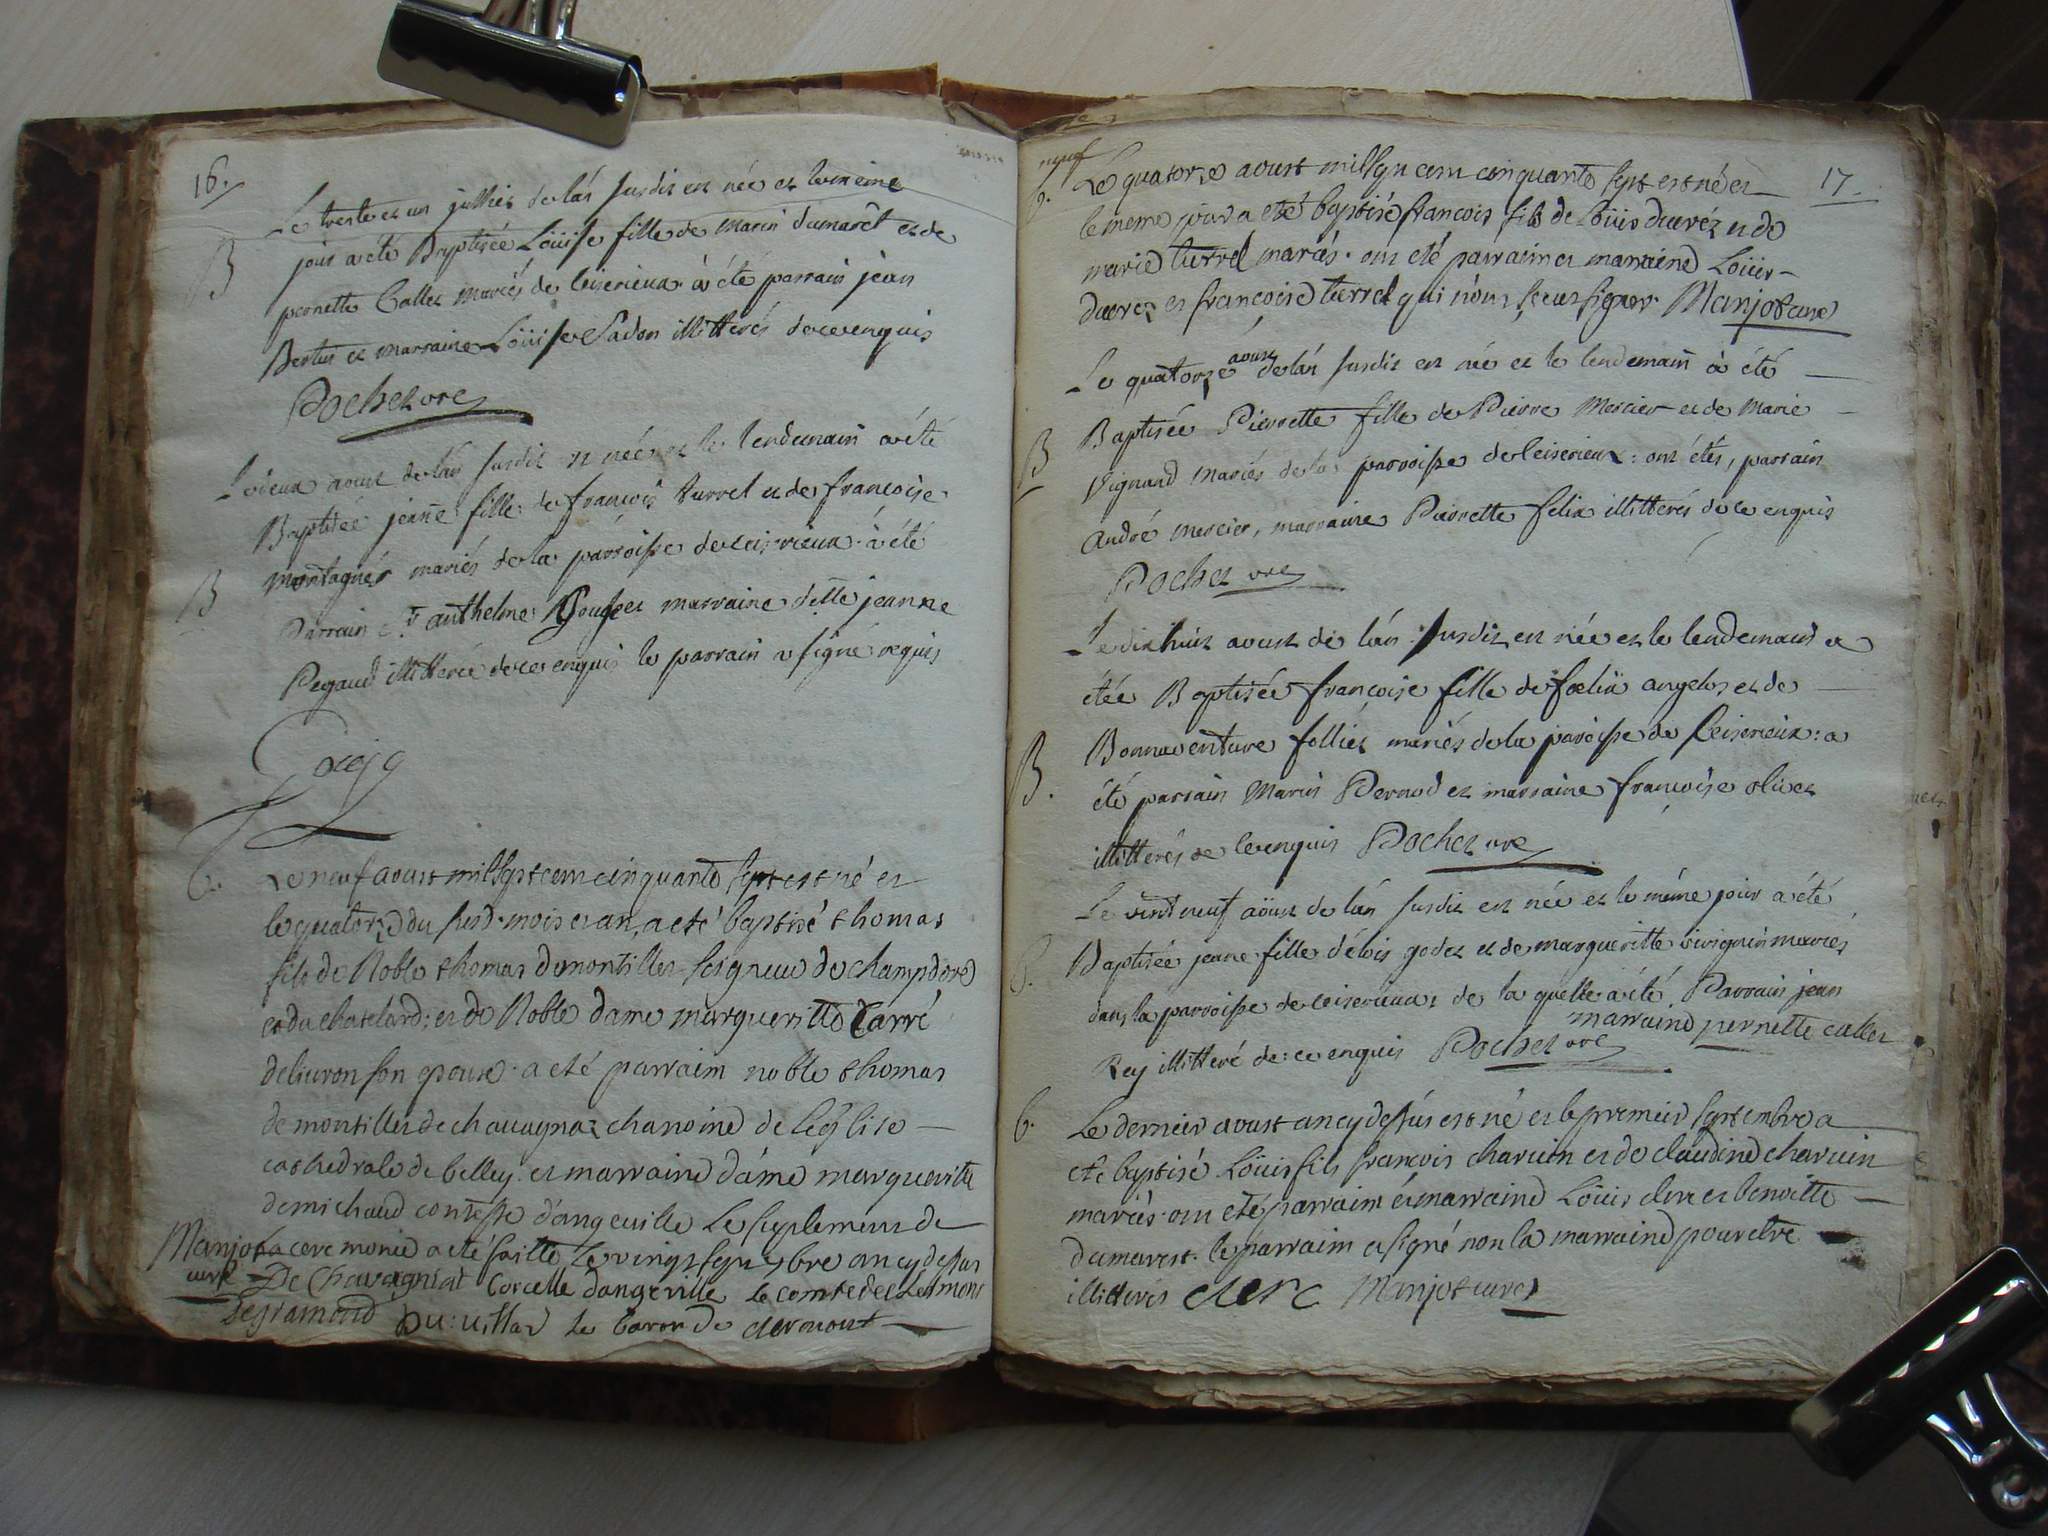 16.
Le trente et un julliet de lán susdit est née et le meme
B
jour a été Baptisée Loüise fille de Marin dumarêt et de
pernette Callet Mariés de Ceiserieux. à été parrain jean
Bertin et marraine Loüise Sadon illitterés de ce enquis
Pochet vre
Le deux aoust de lán susdit est née et le lendemain a été
Baptisée jeanne fille de françois turrel et de françoise
B
montagnér mariés de la parroisse de ceiserieux. à été
Parrain Sr anthelme et marraine dlle jeanne
Pegaud illitterée de ce enquis le parrain a signé requis
b.
Le neuf aoust mil sept cent cinquante sept est né et
le quatorze du susd. mois et an, a eté baptisé thomas
fils de Noble thomas de montillet seigneur de champdore
et du chatelard; et de Noble dame margueritte Carré
de livron son epouse. a eté parraim noble thomas
de montillet de chavagnaz chanoine de l'église
cathedrale de belley. et marraine dáme margueritte
de michaud contesse d'angeville Le suplement de
Manjot la ceremonie a eté faitte le vingt sept 7bre an cy dessus
curé De Chavagniat Corcelle dangeville le comte de
Degramond Du: villar Le Baron De clermont
neuf
17
b.
Le quatorze aoust mil sept cent cinquante sept est né et
le meme jour a eté baptisé francois fils de Loüis ducréz et de
marie turrel mariés. ont eté parraim et marraine Loüis
ducrez et françoise turrel qui n'ont sceu signer. Manjot curé
aoust
Le quatorze de lán susdit est née et le lendemain à été
Baptisée Pierrette fille de Pierre Mercier et de Marie
B
Vignand Mariés de la parroisse de Ceiserieux: ont étés, parrain
André Mercier, marraine Pierrette felix illitterés de ce enquis
Pochet vre
Le dix huit aoust de lán susdit est née et le lendemain a
étée Baptisée françoise fille de foelix angelot et de
B.
Bonnaventure folliet mariés de la paroisse de Ceiserieux: a
été parrain Marin Pernod et marraine françoise olivet
illitterés de ce enquis Pochet vre
Le vint neuf aoust de lán susdit est née et le même jour a été
b.
Baptisée jeane fille délois godet et de margueritte sivignin mariés
dans la parroisse de ceiserieux: de la quelle a été Parrain jean
marraine pernette callet
Rey illitteré de: ce enquis Pochet vre
b.
Le dernier aoust an cy dessus est né et le premier septembre a
eté baptisé Loüis fils françois charvin et de claudine charvin
mariés. ont eté parraim et marraine Loüis clerc et benoitte
dumarest. le parraim a signé non la marraine pour etre
illitterés clerc Manjot curé